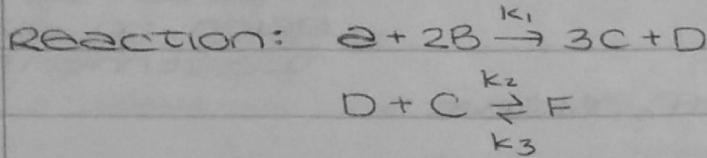 Reaction: a + 2B →k₁ 3C + D
D + C ⇌ F k₂ k₃